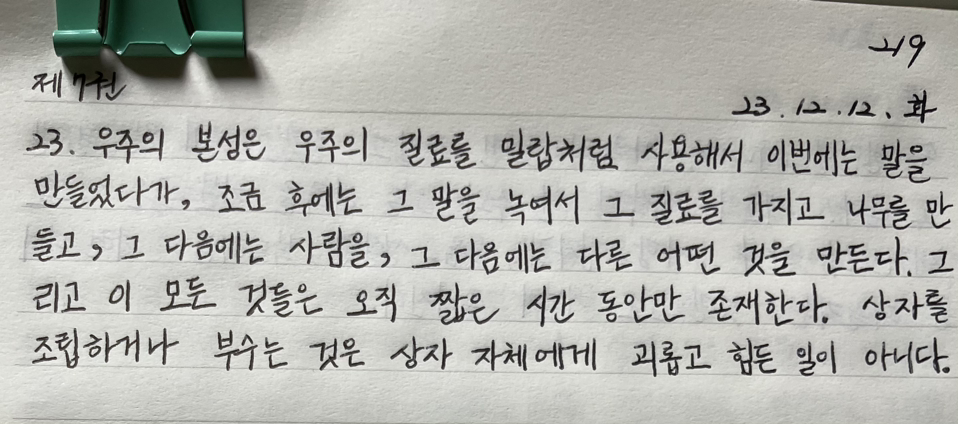 219
제7권
23.12.12. 화
23. 우주의 본성은 우주의 질료를 밀랍처럼 사용해서 이번에는 말을
만들었다가, 조금 후에는 그 말을 녹여서 그 질료를 가지고 나무를 만
들고, 그 다음에는 사람을, 그 다음에는 다른 어떤 것을 만든다. 그
리고 이 모든 것들은 오직 짧은 시간 동안만 존재한다. 상자를
조립하거나 부수는 것은 상자 자체에게 괴롭고 힘든 일이 아니다.